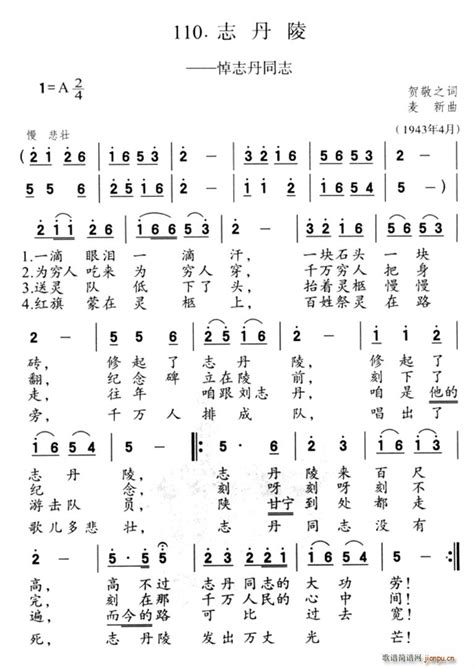 110.志丹陵
——悼志丹同志
1=A 2/4
贺敬之词
麦新曲
(1943年4月)
慢 悲壮
(2̇ 1̇ 2̇6 | 1653 | 2̇ - | 3̇2̇1̇6 | 1̇653 | 2 - |
5 5 2̇6 | 1653 | 2 - | 2̇1̇1̇2̇ | 1̇654 | 5 -) |
2̇1̇ 2̇6 | 1̇6653 | 2̇ - | 3̇2̇ 1̇6 | 1̇653 |
1.一滴 眼泪一 滴 汗, 一块石头 一块
2.为穷人 吃来为 穷人 穿, 千万穷人 把身
3.送灵 队 低下了 头, 抬着灵柩 慢慢
4.红旗 蒙在灵 柩 上, 百姓祭灵 在路
2 - | 5 5 6 | 2̇2̇1̇6 | 5 - | 2̇ 1̇1̇2̇ |
砖, 修起了 志丹 陵, 志丹陵 修
翻, 纪念碑 立在陵 前, 刻下了
走, 往年 咱跟刘志 丹, 咱是他的
旁, 千万人 排成 队, 唱出了
1̇654 | 5 - :| 5 5 6 | 2̇2̇1̇6 | 5653 |
志丹 陵, 志丹 陵来百尺
纪 念, 刻呀 刻呀刻不完
游击队 员, 陕甘宁 到处都走
歌儿多悲 壮, 志丹 同志没有
2̇ - | 5·5 5̇5̇ | 2̇1̇1̇2̇ | 1̇654 | 5 - :|
高, 高不过 志丹同志的 大功 劳!
完, 刻在那 千万人民的 心中 间!
遍, 而今的路 可比 过去 宽!
死, 志丹陵 发出万丈 光 芒!
歌谱简谱网
www.jianpu.cn